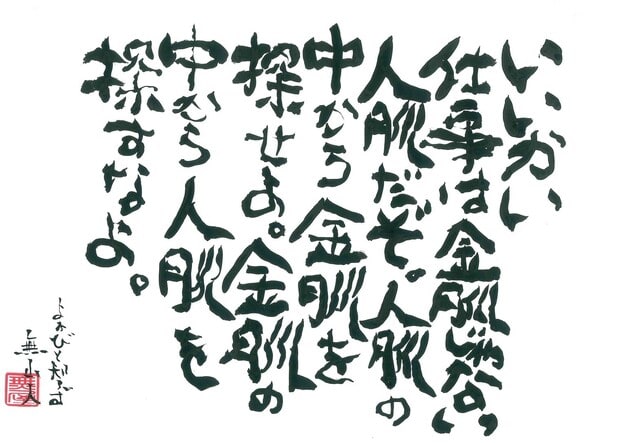 いいかい
仕事は金脈じゃない
人脈だぞ。人脈の
中から金脈を
探せよ。金脈の
中から人脈を
探すなよ。